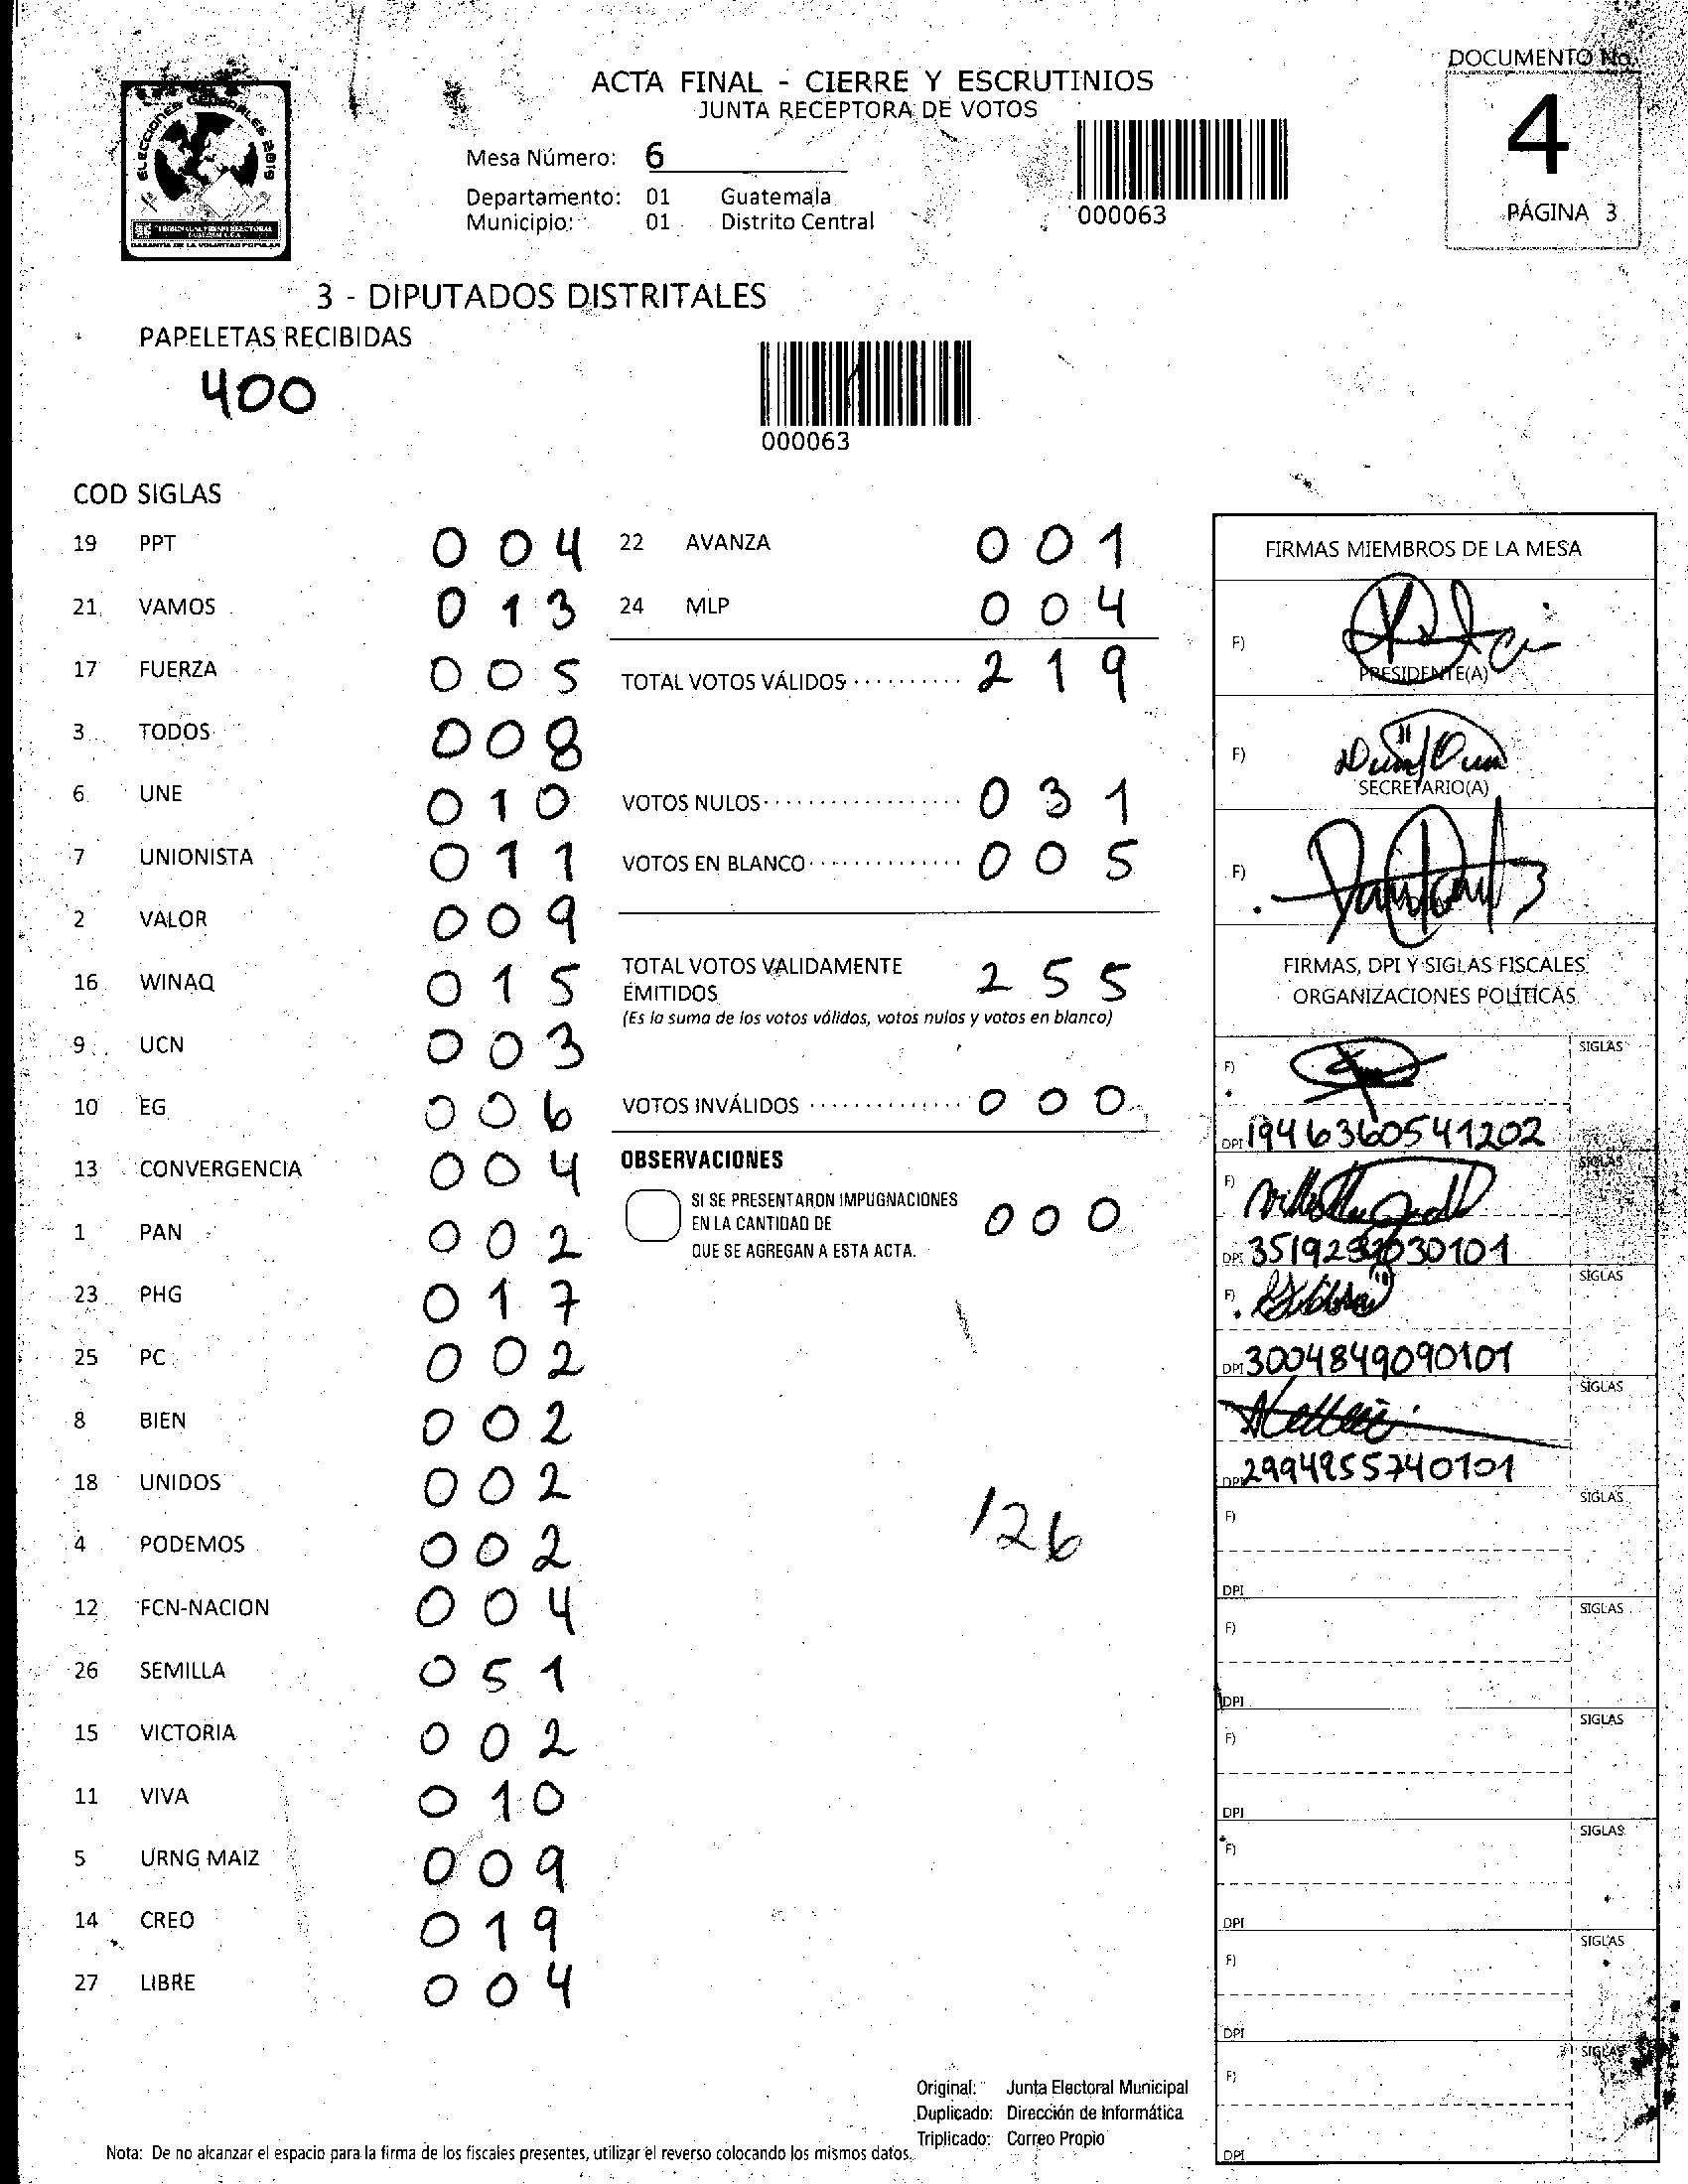 DOCUMENTO No.
ACTA FINAL - CIERRE Y ESCRUTINIOS
JUNTA RECEPTORA DE VOTOS
4
PÁGINA 3
ELECCIONES GENERALES 2019
TRIBUNAL SUPREMO ELECTORAL
GUATEMALA, C.A.
GARANTIA DE LA VOLUNTAD POPULAR
Mesa Número: 6
Departamento: 01 Guatemala
Municipio: 01 Distrito Central
000063
3 - DIPUTADOS DISTRITALES
PAPELETAS RECIBIDAS
400
000063
COD SIGLAS
19 PPT 0 0 4
21 VAMOS 0 1 3
17 FUERZA 0 0 5
3 TODOS 0 0 8
6 UNE 0 1 0
7 UNIONISTA 0 1 1
2 VALOR 0 0 9
16 WINAQ 0 1 5
9 UCN 0 0 3
10 EG 0 0 6
13 CONVERGENCIA 0 0 4
1 PAN 0 0 2
23 PHG 0 1 7
25 PC 0 0 2
8 BIEN 0 0 2
18 UNIDOS 0 0 2
4 PODEMOS 0 0 2
12 FCN-NACION 0 0 4
26 SEMILLA 0 5 1
15 VICTORIA 0 0 2
11 VIVA 0 1 0
5 URNG MAIZ 0 0 9
14 CREO 0 1 9
27 LIBRE 0 0 4
22 AVANZA 0 0 1
24 MLP 0 0 4
TOTAL VOTOS VÁLIDOS 2 1 9
VOTOS NULOS 0 3 1
VOTOS EN BLANCO 0 0 5
TOTAL VOTOS VALIDAMENTE
EMITIDOS 2 5 5
(Es la suma de los votos válidos, votos nulos y votos en blanco)
VOTOS INVÁLIDOS 0 0 0
OBSERVACIONES
SI SE PRESENTARON IMPUGNACIONES
EN LA CANTIDAD DE 0 0 0
QUE SE AGREGAN A ESTA ACTA.
126
FIRMAS MIEMBROS DE LA MESA
F)
PRESIDENTE(A)
F)
SECRETARIO(A)
F)
FIRMAS, DPI Y SIGLAS FISCALES
ORGANIZACIONES POLÍTICAS
F) SIGLAS
DPI 1946360541202
F) SIGLAS
DPI
F) SIGLAS
DPI 3004849090101
F) SIGLAS
DPI 2994955740101
F) SIGLAS
DPI
F) SIGLAS
DPI
F) SIGLAS
DPI
F) SIGLAS
DPI
F) SIGLAS
DPI
F) SIGLAS
DPI
Original: Junta Electoral Municipal
Duplicado: Dirección de Informática
Triplicado: Correo Propio
Nota: De no alcanzar el espacio para la firma de los fiscales presentes, utilizar el reverso colocando los mismos datos.